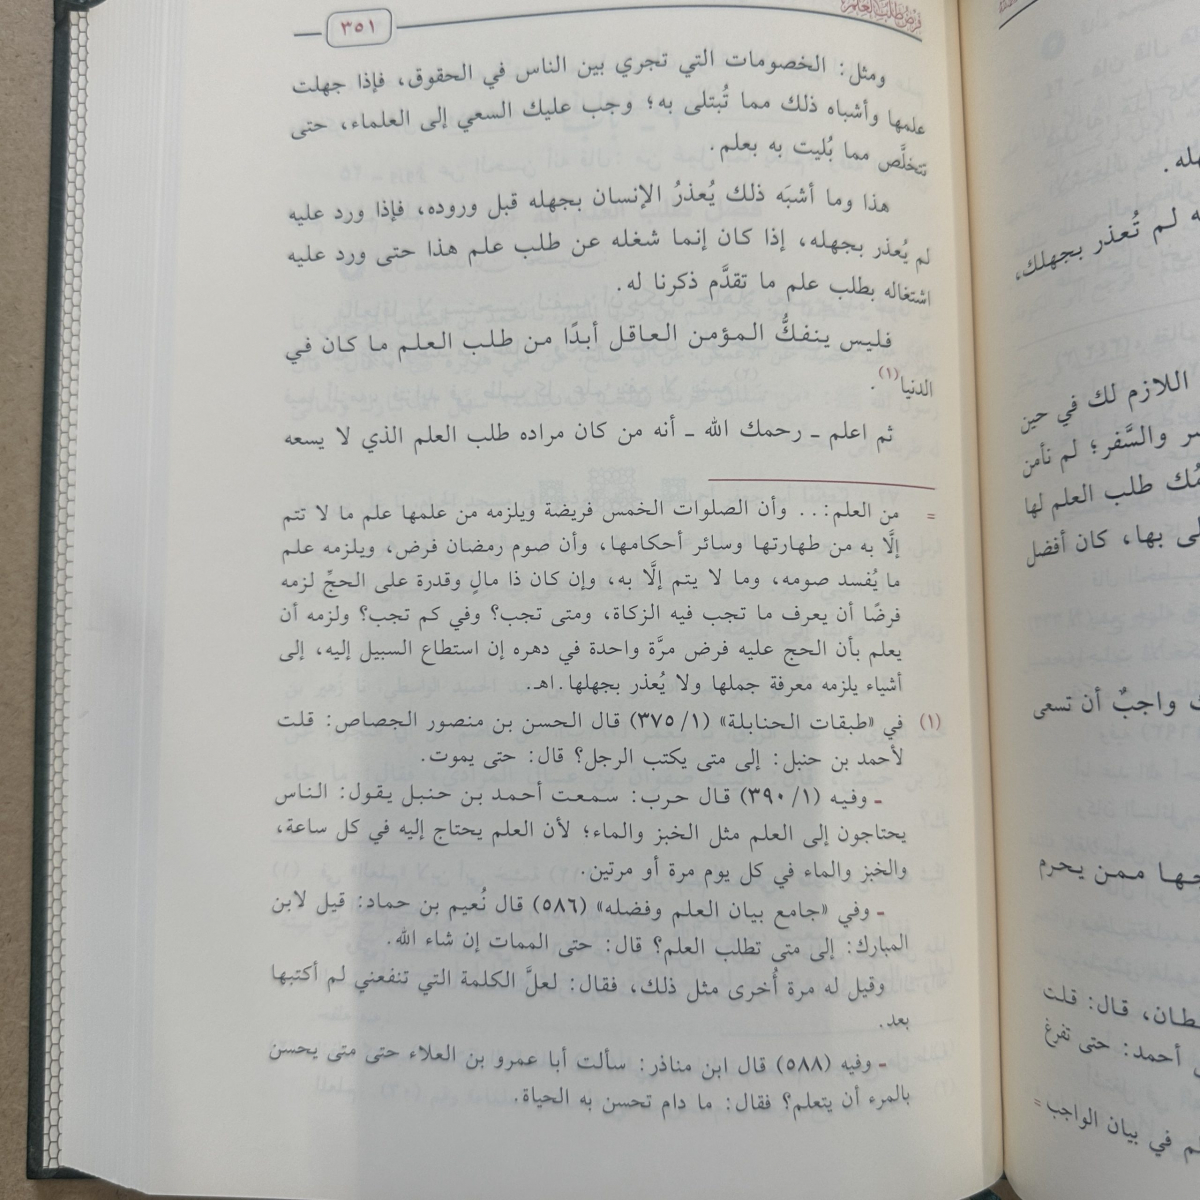 فرض طلب العلم
٣٥١
ومثل: الخصومات التي تجري بين الناس في الحقوق، فإذا جهلت
علمها وأشباه ذلك مما تُبتلى به؛ وجب عليك السعي إلى العلماء، حتى
تتخلَّص مما بُليت به بعلم.
هذا وما أشبَه ذلك يُعذرُ الإنسان بجهله قبل وروده، فإذا ورد عليه
لم يُعذر بجهله، إذا كان إنما شغله عن طلب علم هذا حتى ورد عليه
اشتغاله بطلب علم ما تقدَّم ذكرنا له.
فليس ينفكُّ المؤمن العاقل أبدًا من طلب العلم ما كان في
الدنيا(١).
ثم اعلم ـ رحمك الله ـ أنه من كان مراده طلب العلم الذي لا يسعه
= من العلم:.. وأن الصلوات الخمس فريضة ويلزمه من علمها علم ما لا تتم
إلَّا به من طهارتها وسائر أحكامها، وأن صوم رمضان فرض، ويلزمه علم
ما يُفسد صومه، وما لا يتم إلَّا به، وإن كان ذا مالٍ وقدرة على الحجِّ لزمه
فرضًا أن يعرف ما تجب فيه الزكاة، ومتى تجب؟ وفي كم تجب؟ ولزمه أن
يعلم بأن الحج عليه فرض مرَّة واحدة في دهره إن استطاع السبيل إليه، إلى
أشياء يلزمه معرفة جملها ولا يُعذر بجهلها.اهـ.
(١) في «طبقات الحنابلة» (١/ ٣٧٥) قال الحسن بن منصور الجصاص: قلت
لأحمد بن حنبل: إلى متى يكتب الرجل؟ قال: حتى يموت.
ـ وفيه (١/ ٣٩٠) قال حرب: سمعت أحمد بن حنبل يقول: الناس
يحتاجون إلى العلم مثل الخبز والماء؛ لأن العلم يحتاج إليه في كل ساعة،
والخبز والماء في كل يوم مرة أو مرتين.
ـ وفي «جامع بيان العلم وفضله» (٥٨٦) قال نُعيم بن حماد: قيل لابن
المبارك: إلى متى تطلب العلم؟ قال: حتى الممات إن شاء الله.
وقيل له مرة أُخرى مثل ذلك، فقال: لعلَّ الكلمة التي تنفعني لم أكتبها
بعد.
ـ وفيه (٥٨٨) قال ابن مناذر: سألت أبا عمرو بن العلاء حتى متى يحسن
بالمرء أن يتعلم؟ فقال: ما دام تحسن به الحياة.
لم تُعذر بجهلك،
اللازم لك في حين
والسَّفر؛ لم نأمن
طلب العلم لها
بها، كان أفضل
واجبٌ أن تسعى
ممن يحرم
قال: قلت
أحمد: حتى تفرغ
في بيان الواجب =